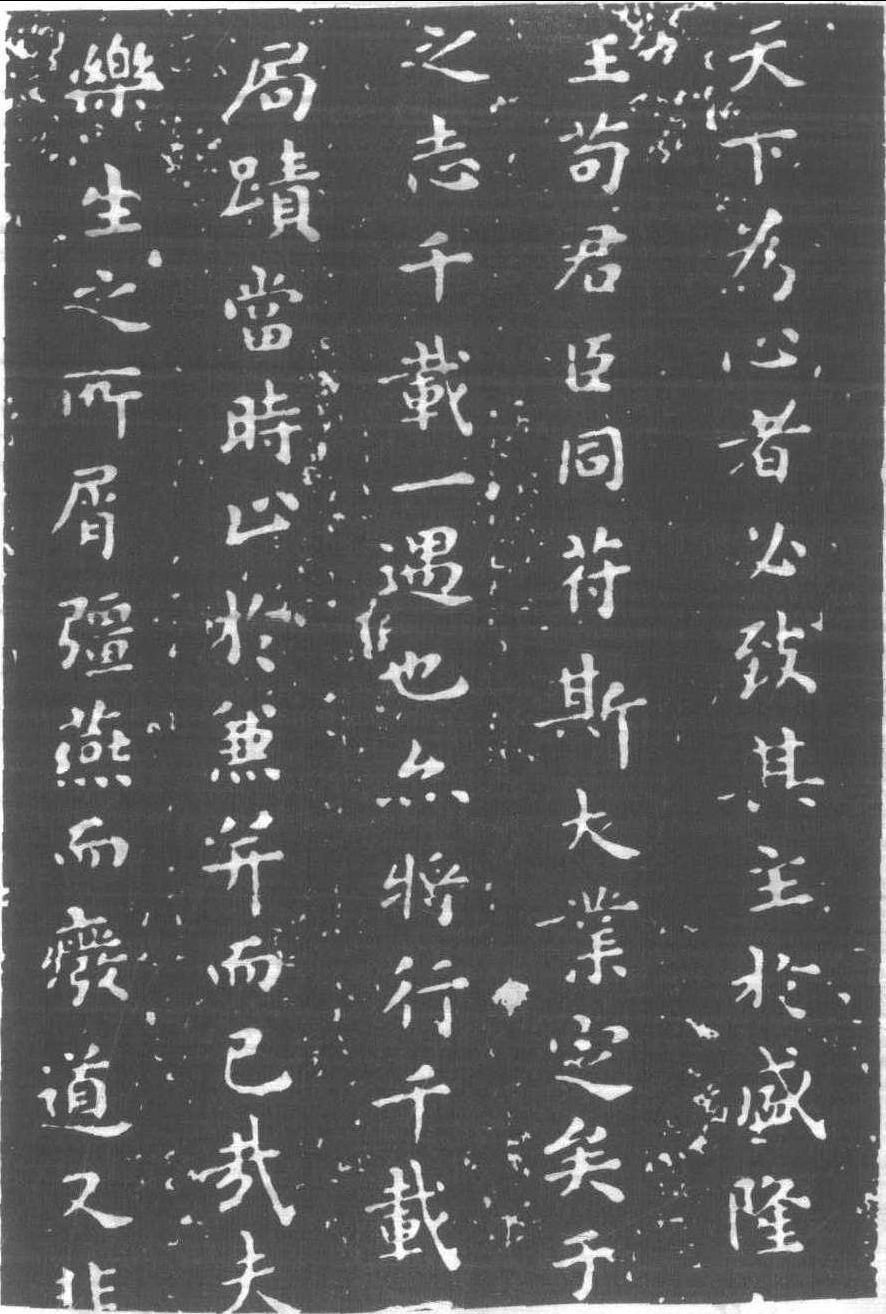 天下為心者必致其主於盛隆
王苟君臣同符斯大業定矣于
之志千載一遇也亦將行千載
局蹟當時止於兼并而已哉夫
樂生之所屑彊燕而廢道又非